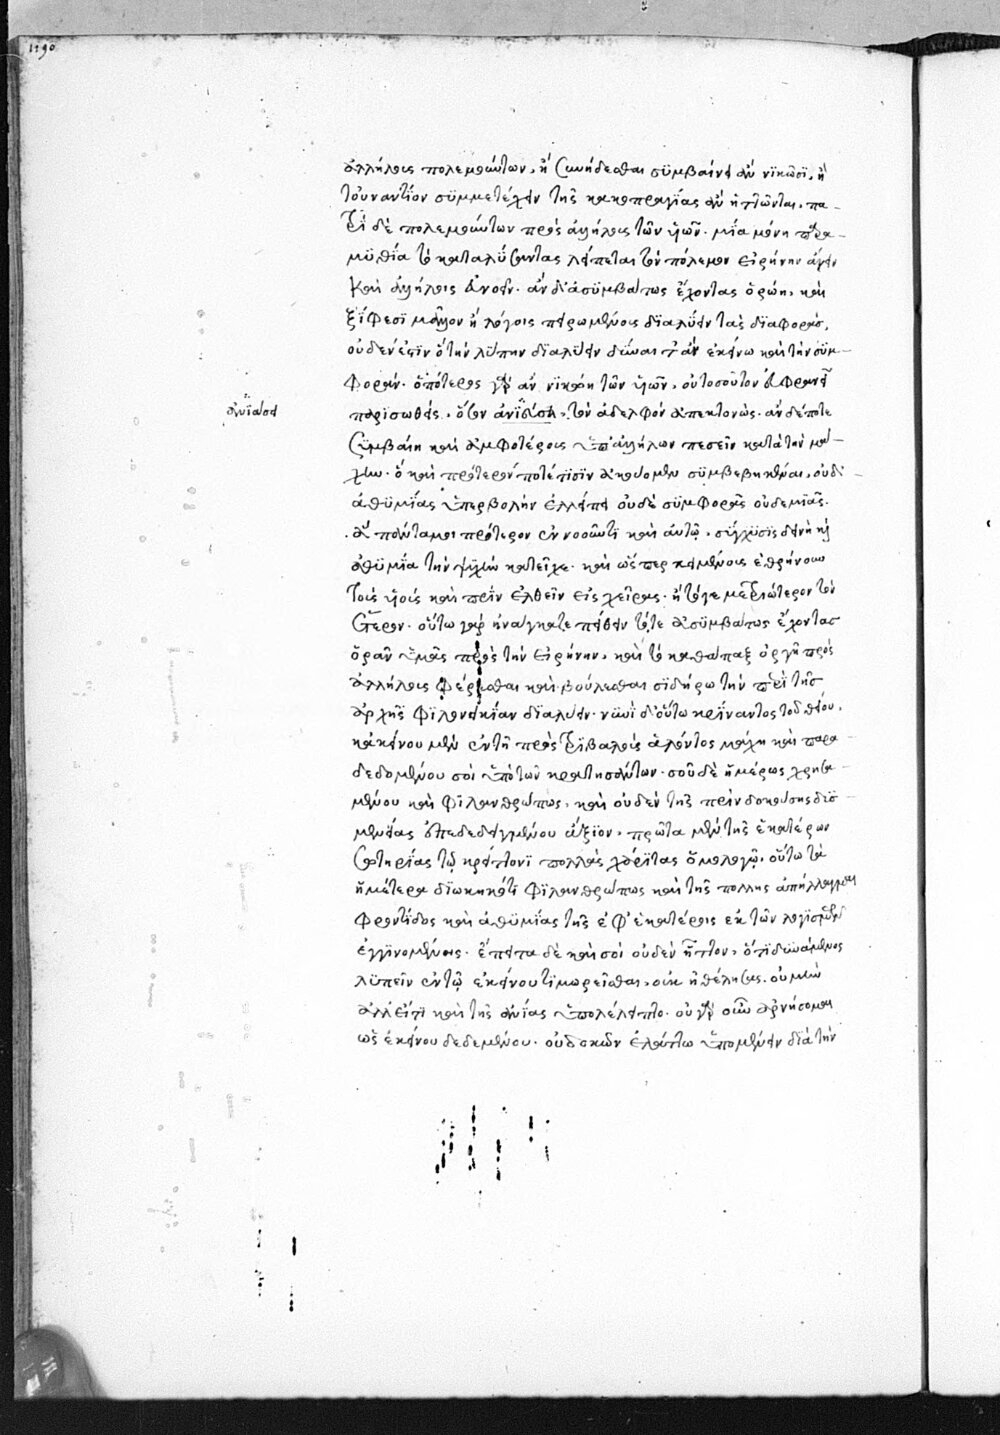 1190
ἀλλήλοις πολεμούντων, ἢ συνήδεσθαι συμβαίνει οὗ νικῶσι, ἢ
τοὐναντίον συμμετέχειν τῆς κακοπραγίας οὗ ἡττῶνται, πα-
τρὶ δὲ πολεμούντων πρὸς ἀλλήλους τῶν υἱῶν. μία μόνη παρα-
μυθία τὸ καταλύσαντας λείπεται τὸν πόλεμον εἰρήνην ἄγειν
καὶ ἀλλήλοις
ἂν δ' ἀσυμβάτως ἔχοντας ὁρώῃ, καὶ
ξίφεσι μᾶλλον ἢ λόγοις πειρωμένους διαλύειν τὰς διαφορὰς,
οὐδέν ἐστιν ὃ τὴν λύπην διαλύειν δύναιτ' ἂν ἐκείνω καὶ τὴν συμ-
φοράν. ὁπότερος γὰρ ἂν νικώη τῶν υἱῶν, οὐ τοσοῦτον εὐφρανεῖ
παρισωθεὶς, ὅσον ἀνιάσει, τὸν ἀδελφὸν ἀπεκτονώς. ἂν δέ ποτε
ἀνιάσει
συμβαίη καὶ ἀμφοτέροις ὑπ' ἀλλήλων πεσεῖν κατὰ τὴν μά-
χην. ὃ καὶ πρότερόν ποτέ τισιν ἀκούομεν συμβεβηκέναι, οὐδ'
ἀθυμίας ὑπερβολὴν ἐλλείπει οὐδὲ συμφορᾶς οὐδεμιᾶς.
ἃ πολλάκις πρότερον ἐννοοῦντι καὶ αὐτῷ, σύγχυσις δεινὴ καὶ
ἀθυμία τὴν ψυχὴν κατεῖχε. καὶ ὥσπερ κειμένους ἐθρήνουν
τοὺς υἱοὺς καὶ πρὶν ἐλθεῖν εἰς χεῖρας. ἢ τό γε μετριώτερον τὸν
ἕτερον. οὕτω γὰρ ἠνάγκαζε πάθειν τότε ἀσυμβάτως ἔχοντας
ὁρᾶν ὑμᾶς πρὸς τὴν εἰρήνην, καὶ τὸ καθάπαξ ὀργῇ πρὸς
ἀλλήλους φέρεσθαι καὶ βούλεσθαι σιδήρω τὴν περὶ τῆς
ἀρχῆς φιλονεικίαν διαλύειν. νυνὶ δ' οὕτω κρίναντος τοῦ θεοῦ,
κἀκείνου μὲν ἐν τῇ πρὸς τριβαλοὺς ἁλόντος μάχῃ καὶ παρα-
δεδομένου σοὶ ὑπὸ τῶν κρατησάντων. σοῦ δὲ ἡμέρως χρησα-
μένου καὶ φιλανθρώπως, καὶ οὐδὲν τῆς πρὶν δοκούσης δυσ-
μενείας ἐπιδεδειγμένου ἄξιον, πρῶτα μὲν τῆς ἑκατέρων
σωτηρίας τῷ κρείττονι πολλὰς χάριτας ὁμολογῶ, οὕτω τὰ
ἡμέτερα διωκηκότι φιλανθρώπως καὶ τῆς πολλῆς ἀπήλλαγμαι
φροντίδος καὶ ἀθυμίας τῆς ἐφ' ἑκατέροις ἐκ τῶν λογισμῶν
ἐγγινομένης. ἔπειτα δὲ καὶ σοὶ οὐδὲν ἧττον, ὅτι δυνάμενος
λυπεῖν ἐν τῷ ἐκεῖνον τιμωρεῖσθαι, οὐκ ἠθέλησας. οὐ μὴν
ἀλλ' ἔτι καὶ τῆς ἀνίας ὑπολέλειπτο. οὐ γὰρ οὖν ἀρνήσομαι
ὡς ἐκείνου δεδεμένου. οὐδ' ὁκοῦν ἐλάττω ὑπομένειν διὰ τὴν